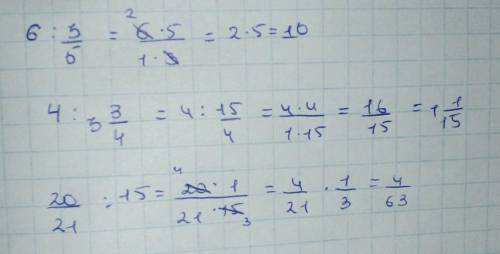 6 : 3/5 = 2 6·5 / 1·3 = 2·5=10
4 : 3 3/4 = 4 : 15/4 = 4·4 / 1·15 = 16/15 = 1 1/15
20/21 : 15 = 4 20·1 / 21·15 3 = 4/21 · 1/3 = 4/63